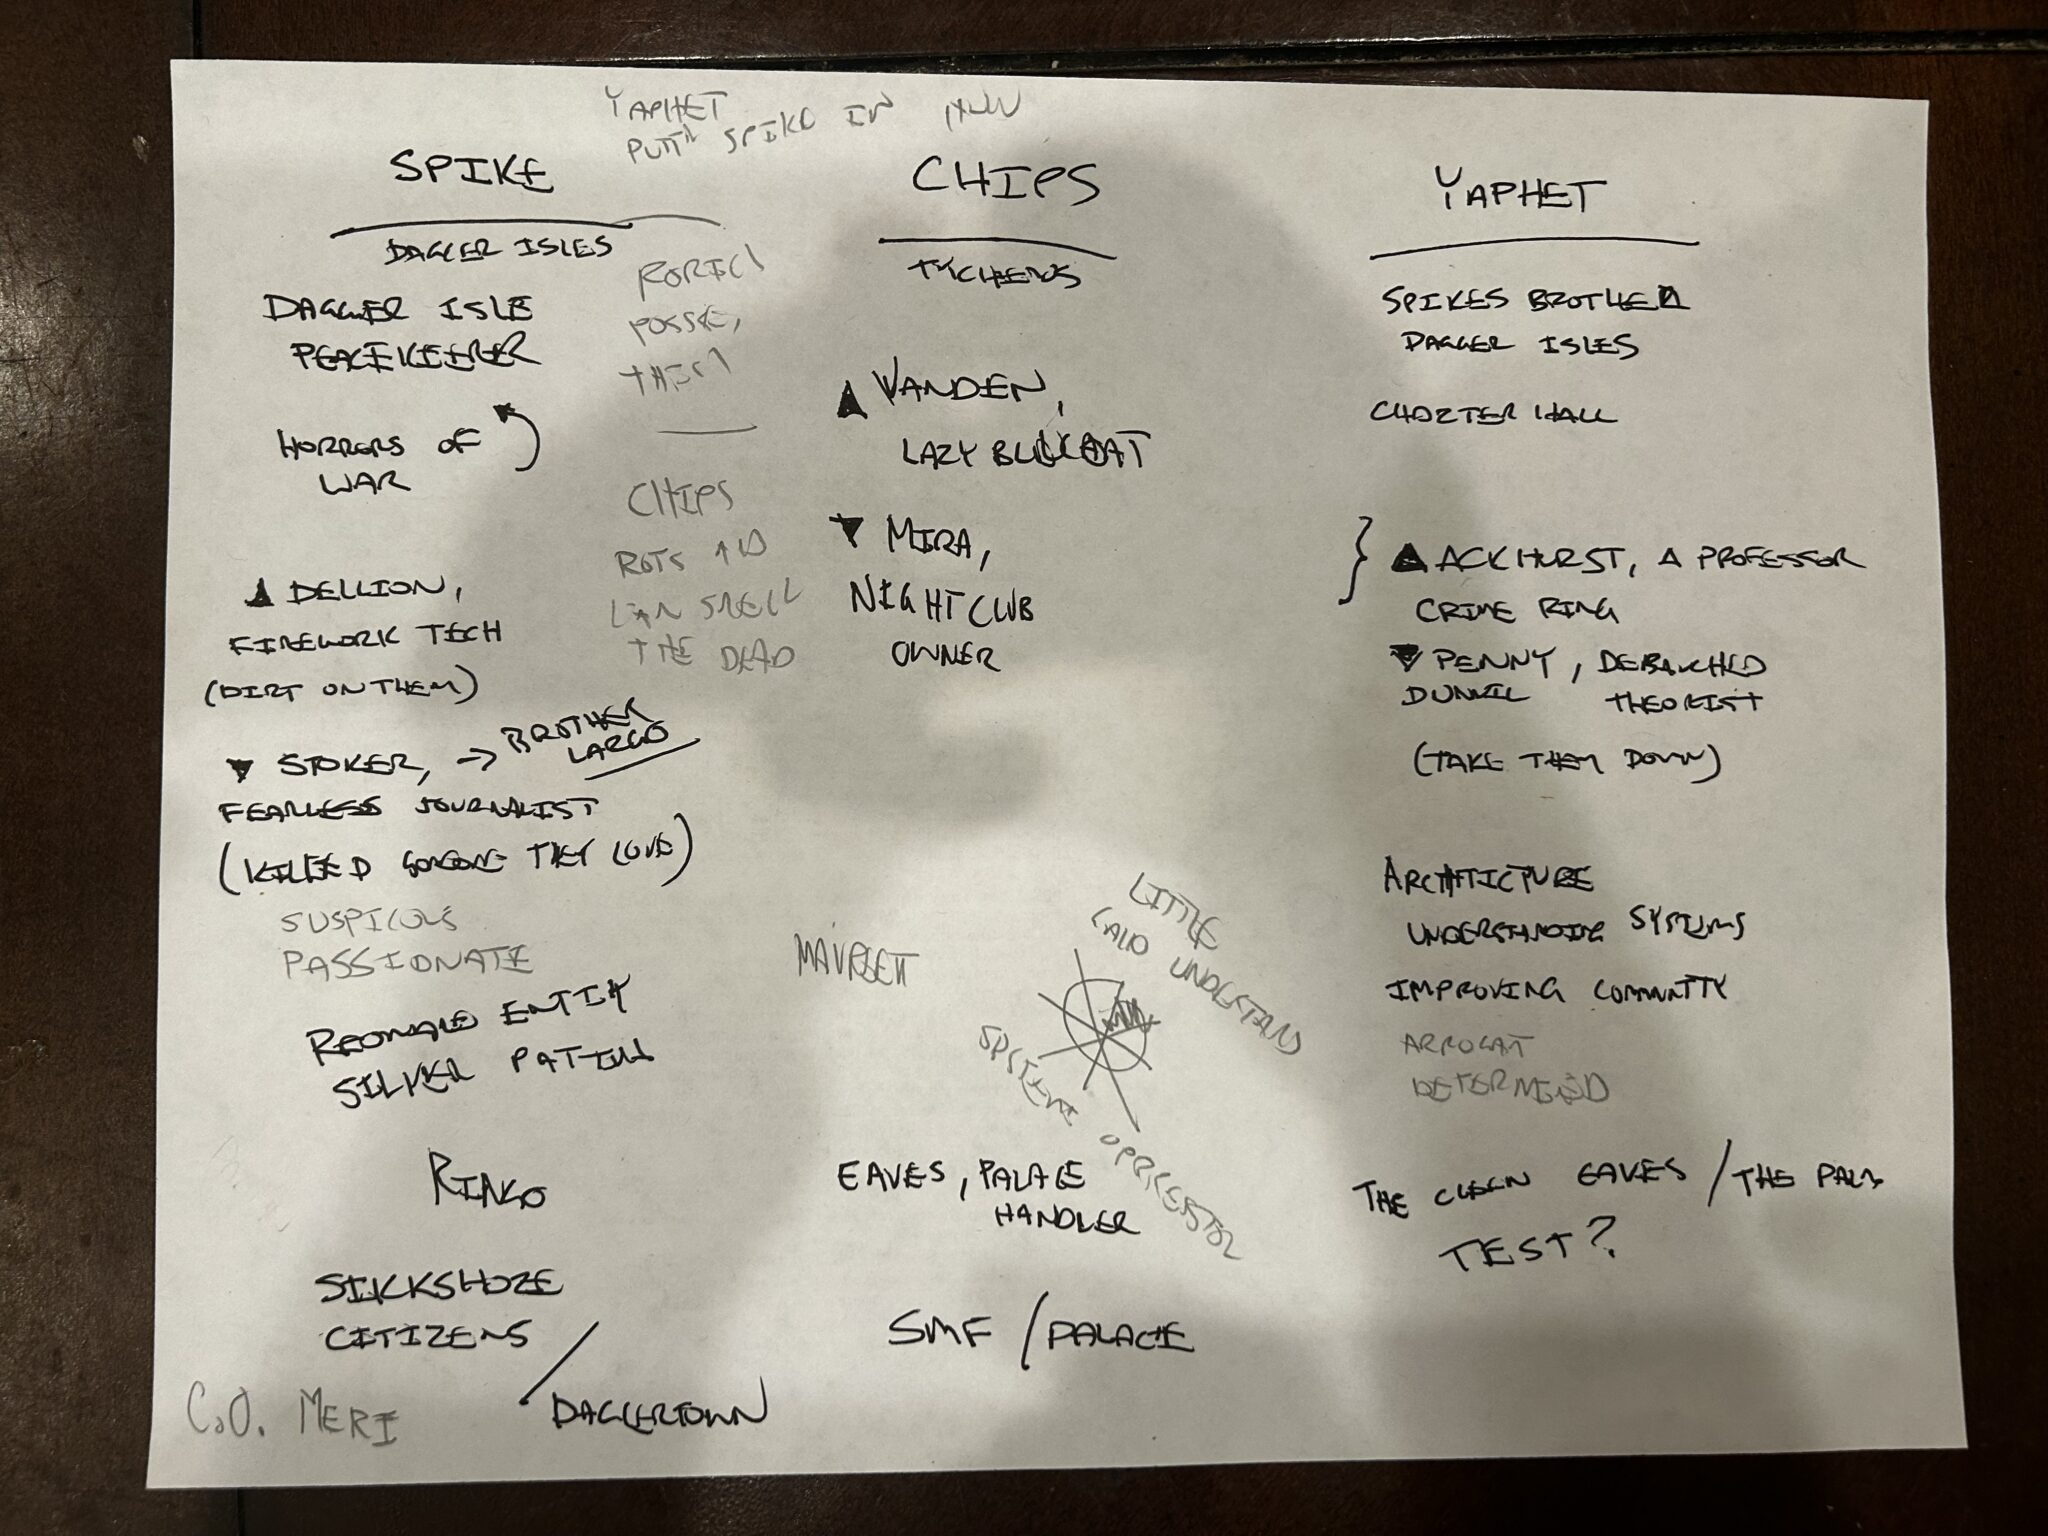 YAPHET
SPIKE IN
SPIKE
DAGGER ISLES
DAGGER ISLE
PEACEKEEPER
HORRORS OF
WAR
▲ DELLION,
FIREWORK TECH
(DIRT ON THEM)
▼ STOKER, → BROTHER
LARGO
FEARLESS JOURNALIST
(KILLED SOMEONE THEY LOVE)
SUSPICOUS
PASSIONATE
ENTITY
SILVER
RINGO
SILKSHORE
CITIZENS
/ DAGGERTOWN
C.O. MERI
RORICI
POSSE,
CHIPS
SMELL
THE DEAD
CHIPS
TYCHEROS
▲ VANDEN,
LAZY BLUECOAT
▼ MIRA,
NIGHTCLUB
OWNER
LITTLE
UNDERSTAND
SPIKE
OPPRESSOR
EAVES, PALACE
HANDLER
SMF / PALACE
YAPHET
SPIKES BROTHER
DAGGER ISLES
CHORTER HALL
} ▲ ACKHURST, A PROFESSOR
CRIME RING
▼ PENNY, DEBAUCHED
DUNVIL THEORIST
(TAKE THEM DOWN)
ARCHITICTURE
UNDERSTANDING SYSTEMS
IMPROVING COMMUNITY
ARROGAT
DETERMINED
THE EAVES / THE PALA
TEST?